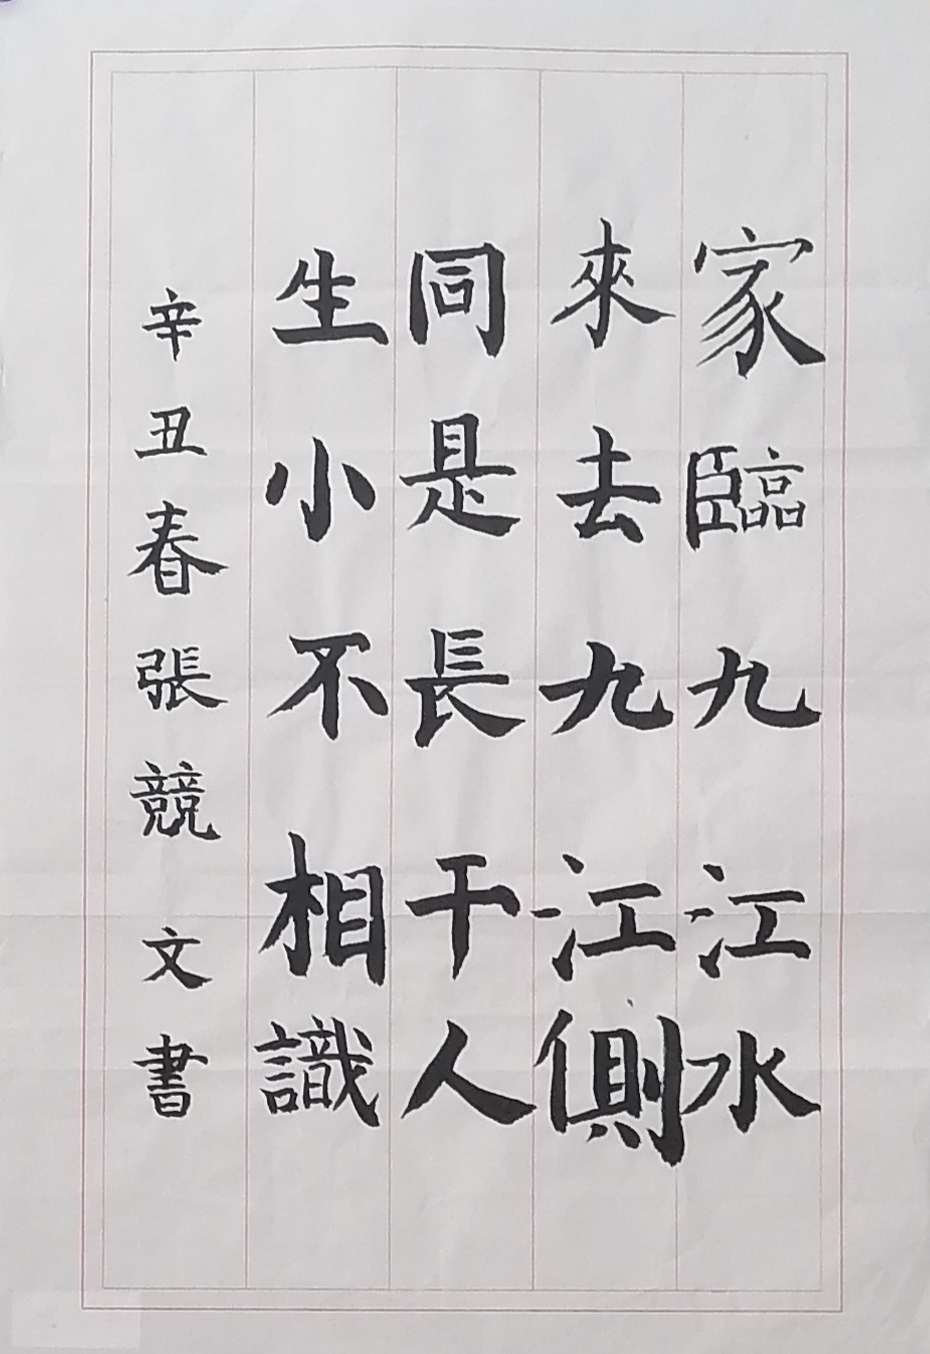 家臨九江水
來去九江側
同是長干人
生小不相識
辛丑春張競文書